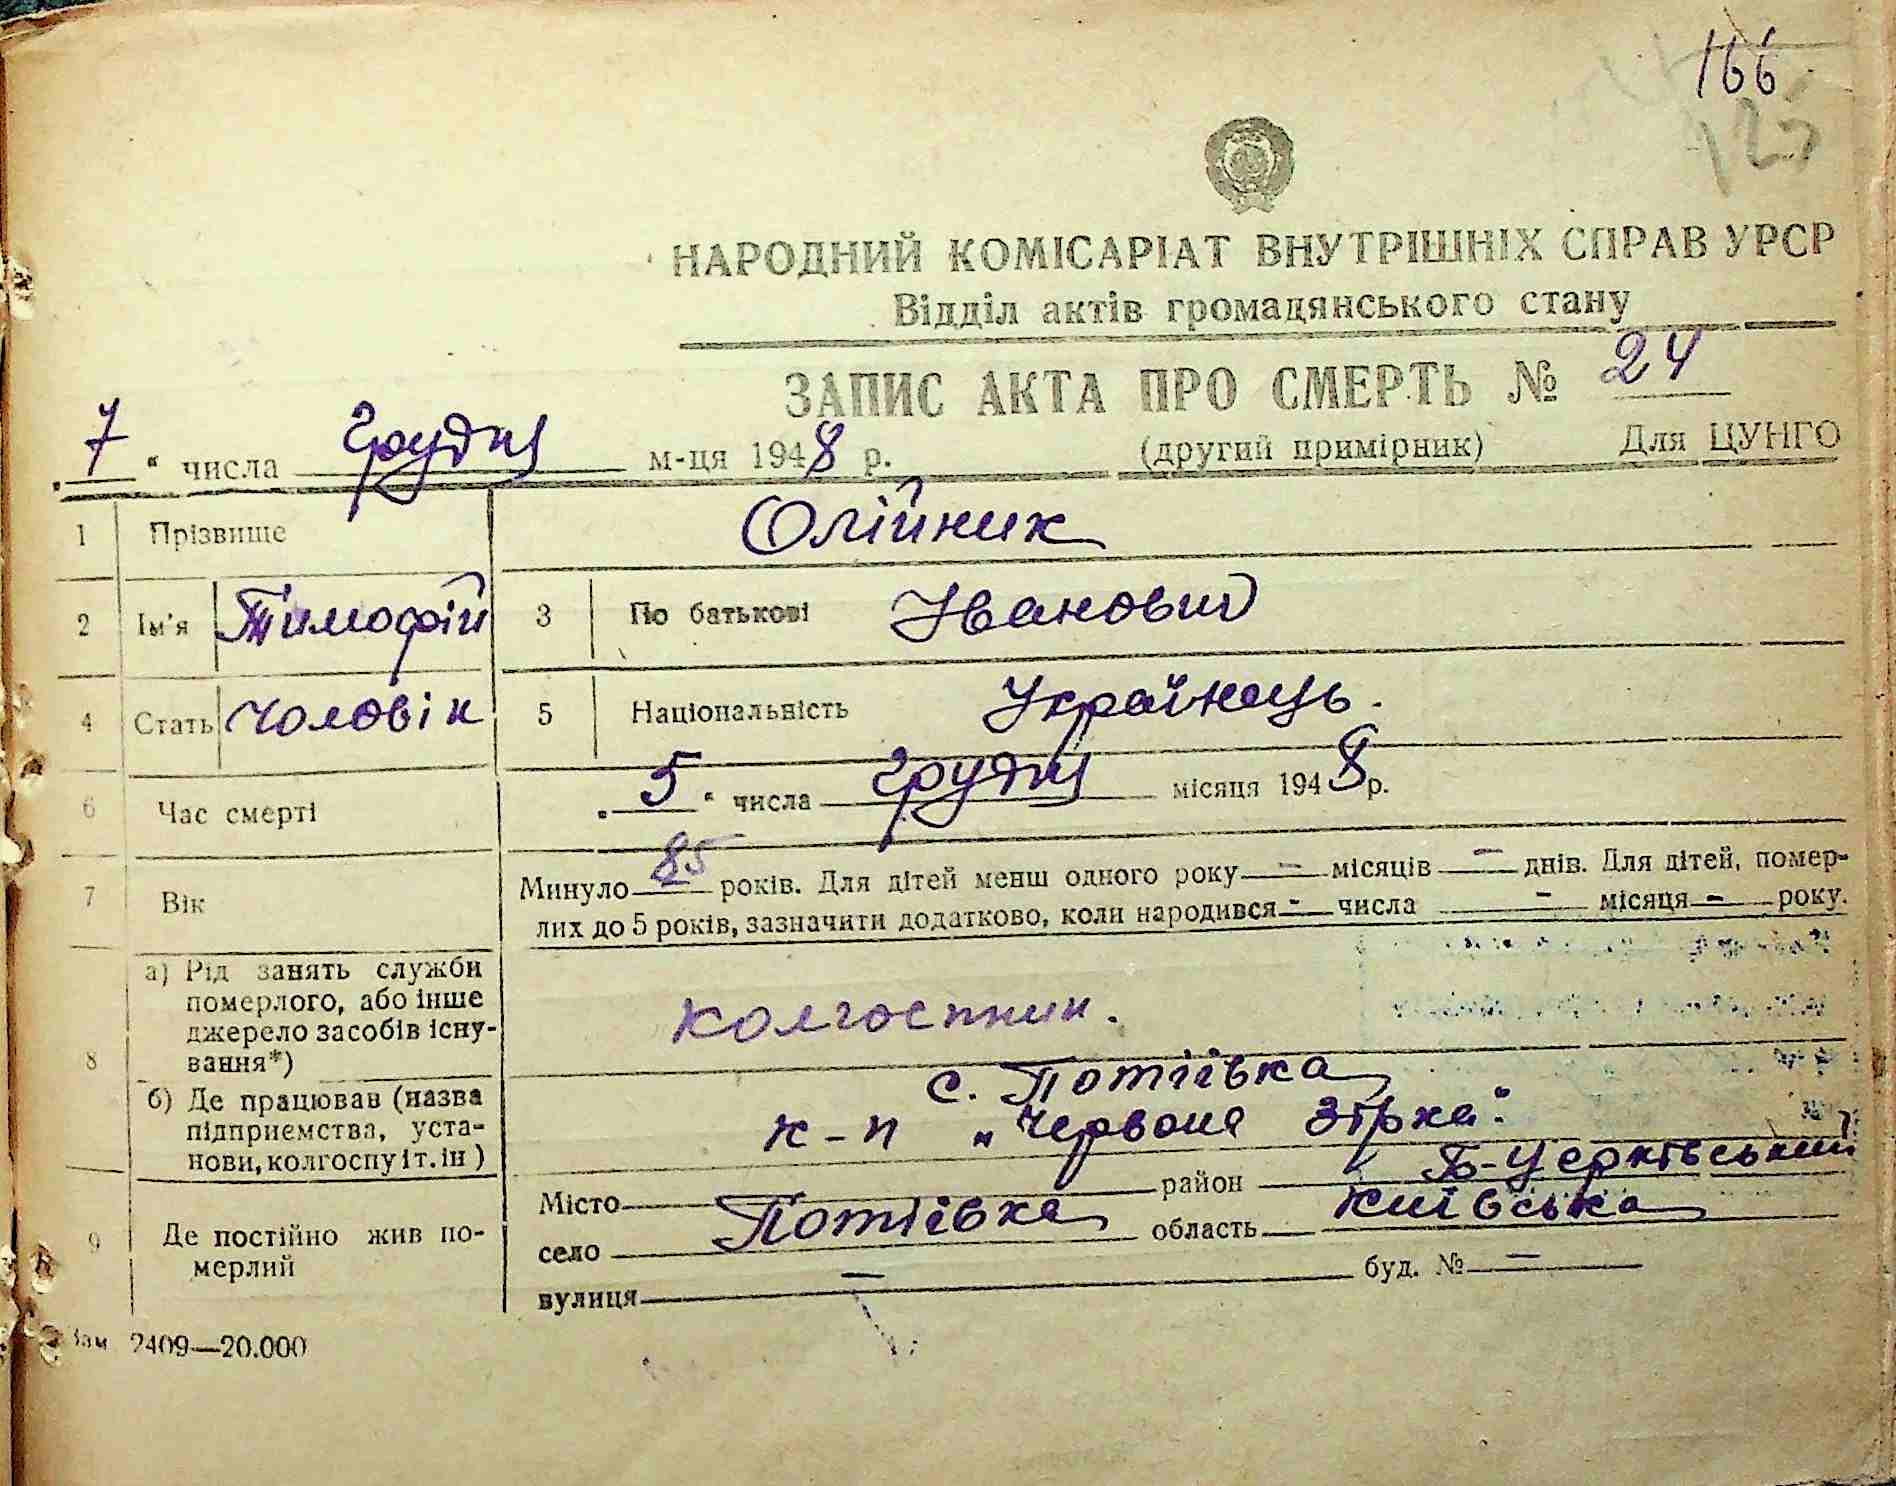 166
125
НАРОДНИЙ КОМІСАРІАТ ВНУТРІШНІХ СПРАВ УРСР
Відділ актів громадянського стану
ЗАПИС АКТА ПРО СМЕРТЬ № 24
„7“ числа грудня м-ця 1948 р. (другий примірник) Для ЦУНГО
1 Прізвище Олійник
2 Ім'я Тимофій 3 По батькові Іванович
4 Стать чоловік 5 Національність Українець.
6 Час смерті „5“ числа грудня місяця 1948 р.
7 Вік Минуло 85 років. Для дітей менш одного року — місяців — днів. Для дітей, помер-
лих до 5 років, зазначити додатково, коли народився - числа - місяця - року.
8 а) Рід занять служби
померлого, або інше
джерело засобів існу-
вання*)
колгоспник.
б) Де працював (назва
підприємства, уста-
нови, колгоспу і т. ін)
с. Потіївка
к-п „Червона Зірка".
9 Де постійно жив по-
мерлий
Місто район Б-Церківський
село Потіївка область Київська
вулиця — буд. № —
Зам 2409—20.000